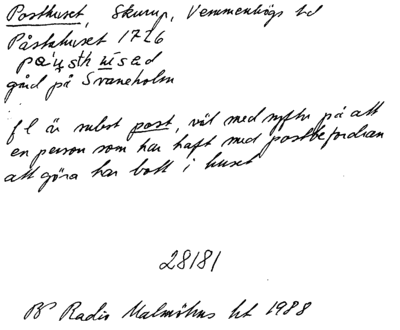 Posthuset, Skurup, Vemmenhögs hd
Påstahuset 1726
gård på Svaneholm
fl är subst post, väl med syftn på att
en person som har haft med postbefordran
att göra har bott i huset
28181
BP Radio Malmöhus ht 1988